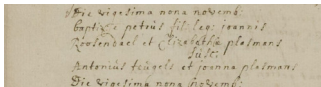 Die vigesima nona novemb:
Baptiz petrus fil: leg: joannis
Roosenbael et Elizabetha plasmans
susc:
Antonius teugels et joanna plasmans
Die vigesima nona novemb: